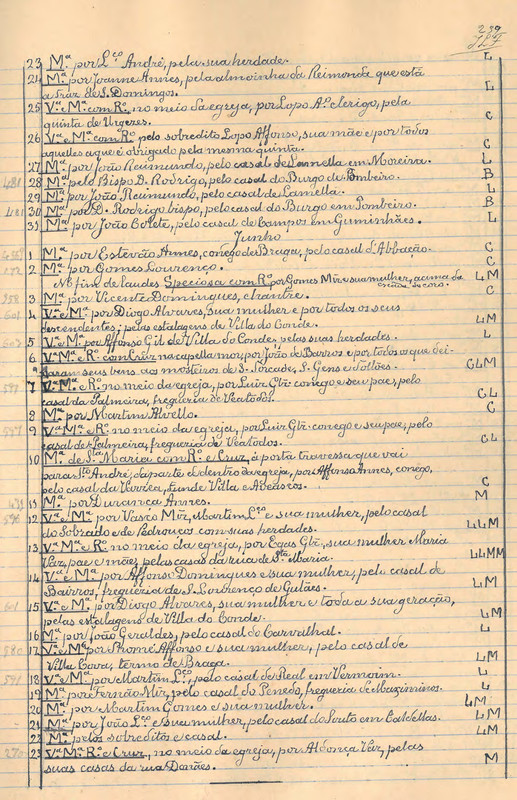 239
23 M.ª por L.ço André, pela sua herdade. L
24 M.ª por Joanne Annes, pela almoinha da Reimonda que está
a traz de S. Domingos. L
25 V.ª e M.ª com R.º no meio da egreja, por Lopo A.º clerigo, pela
quinta de Urgeres. C
26 V.ª e M.ª com R.º pelo sobredito Lopo Affonso, sua mãe e por todos
aquelles a que é obrigado pela mesma quinta. C
27 M.ª por João Reimundo, pelo casal de Lamella em Moreira. L
481 28 M.ª pelo Bispo D. Rodrigo, pelo casal do Burgo de Pombeiro. B
29 M.ª por João Reimundo, pelo casal de Lamella. L
481 30 M.ª por D. Rodrigo bispo, pelo casal do Burgo em Pombeiro. B
31 M.ª por João Colete, pelo casal de Campos em Guminhães. L
Junho
1 M.ª por Estevão Annes, conego de Braga, pelo casal d'Abbação. C
2 M.ª por Gomes Lourenço. C
No fim de laudes Speciosa com R.º por Gomes Miz e sua mulher, acima da
do coro. L M
3 M.ª por Vicente Domingues, chantre. C
601 4 V.ª e M.ª por Diogo Alvares, sua mulher e por todos os seus
descendentes; pelas estalagens de Villa do Conde. L M
5 V.ª e M.ª por Affonso Gil de Villa do Conde, pelas suas herdades. L
6 V.ª M.ª e R.º com Cruz na capella mor, por João de Barros e por todos que dei-
xaram seus bens aos mosteiros de S. Torcade, S. Gens e Tollões. C L M
7 V.ª M.ª e R.º no meio da egreja, por Luiz Glz conego e seu pae, pelo
casal da Palmeira, freguezia de Veatodos. C L
8 M.ª por Martim Alvello. C
9 V.ª M.ª e R.º no meio da egreja, por Luiz Glz conego e seu pae, pelo
casal de Palmeira, freguezia de Veatodos. C L
10 M.ª de S.ta Maria com R.º e Cruz, á porta travessa que vai
para S.to André, da parte de dentro da egreja, por Affonso Annes, conego,
pelo casal da Correa, Lunde Villa e C
11 M.ª por Durança Annes. M
12 V.ª e M.ª por Vasco Miz, Martim L.ço e sua mulher, pelo casal
do Sobrado e de Pedrouço com suas herdades. L L M
13 V.ª M.ª e R.º no meio da egreja, por Egas Glz, sua mulher Maria
Vaz, pae e mãe, pelas casas da rua de S.ta Maria. L L M M
14 V.ª e M.ª por Affonso Domingues e sua mulher, pelo casal de
Bairros, freguezia de S. Lourenço de Gulães. L M
601 15 V.ª e M.ª por Diogo Alvares, sua mulher e toda a sua geração,
pelas estalagens de Villa do Conde. L M
16 M.ª por João Geraldes, pelo casal do Carvalhal. L
580 17 V.ª e M.ª por Thomé Affonso e sua mulher, pelo casal de
Villa Cova, termo de Braga. L M
18 V.ª e M.ª por Martim L.ço, pelo casal de Real em Vermoim. L
19 M.ª por Fernão Miz, pelo casal do Penedo, freguezia de Maximinos. L
20 M.ª por Martim Gomes e sua mulher. L M
21 M.ª por João L.ço e sua mulher, pelo casal do Souto em Caldellas. L M
22 M.ª pelos sobreditos e casal. L M
270 23 V.ª M.ª R.º e Cruz, no meio da egreja, por Aldonça Vaz, pelas
suas casas da rua Donães. M